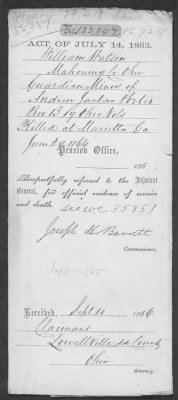 No. 133,844
ACT OF JULY 14, 1862.
William Watson
Mahoning Co Ohio
Guardian Minor of
Andrew Jackson Porter
Pri B 19 Ohio Vols
Killed at Marietta Ga
June 1864
Pension Office,
186
Respectfully referred to the Adjutant
General, for official evidence of service
and death.
see wc 55851
Joseph H Barrett
Commissioner.
Received, Sept 10 1866
Claimant
Lowellville
Ohio
Attorney.